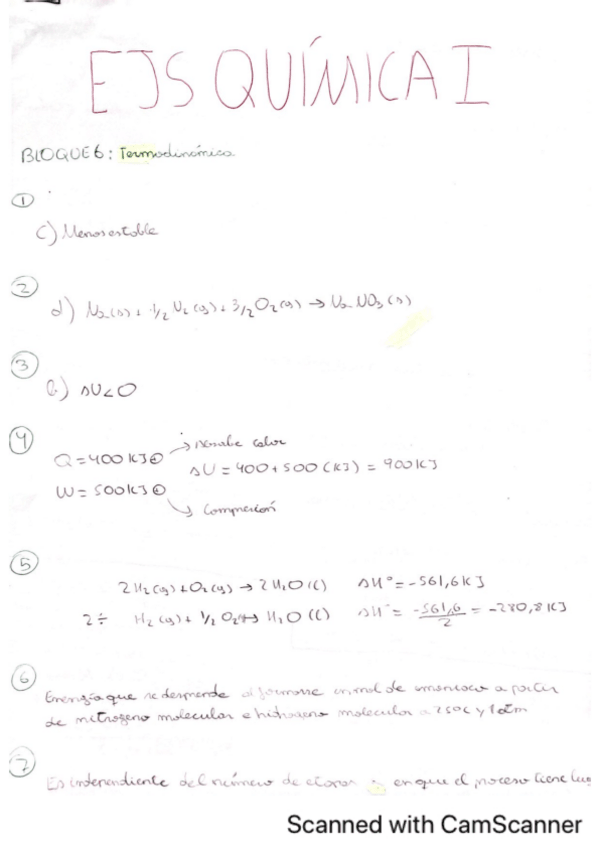 EJS QUÍMICA I
BLOQUE 6: Termodinámica
①
c) Menos estable
②
d) Na(s) + 1/2 N2(g) + 3/2 O2(g) → NaNO3(s)
③
b) ΔU<0
④
Q = 400 KJ ⊕ → Absorbe calor
ΔU = 400 + 500 (KJ) = 900 KJ
W = 500 KJ ⊕
↳ Compresión
⑤
2H2(g) + O2(g) → 2H2O(l) ΔH° = -561,6 KJ
2÷ H2(g) + 1/2 O2 → H2O(l) ΔH° = -561,6/2 = -280,8 KJ
⑥
Energía que se desprende al formarse un mol de amoniaco a partir
de nitrógeno molecular e hidrógeno molecular a 25ºC y 1 atm
⑦
Es independiente del número de etapas en que el proceso tiene lug
Scanned with CamScanner